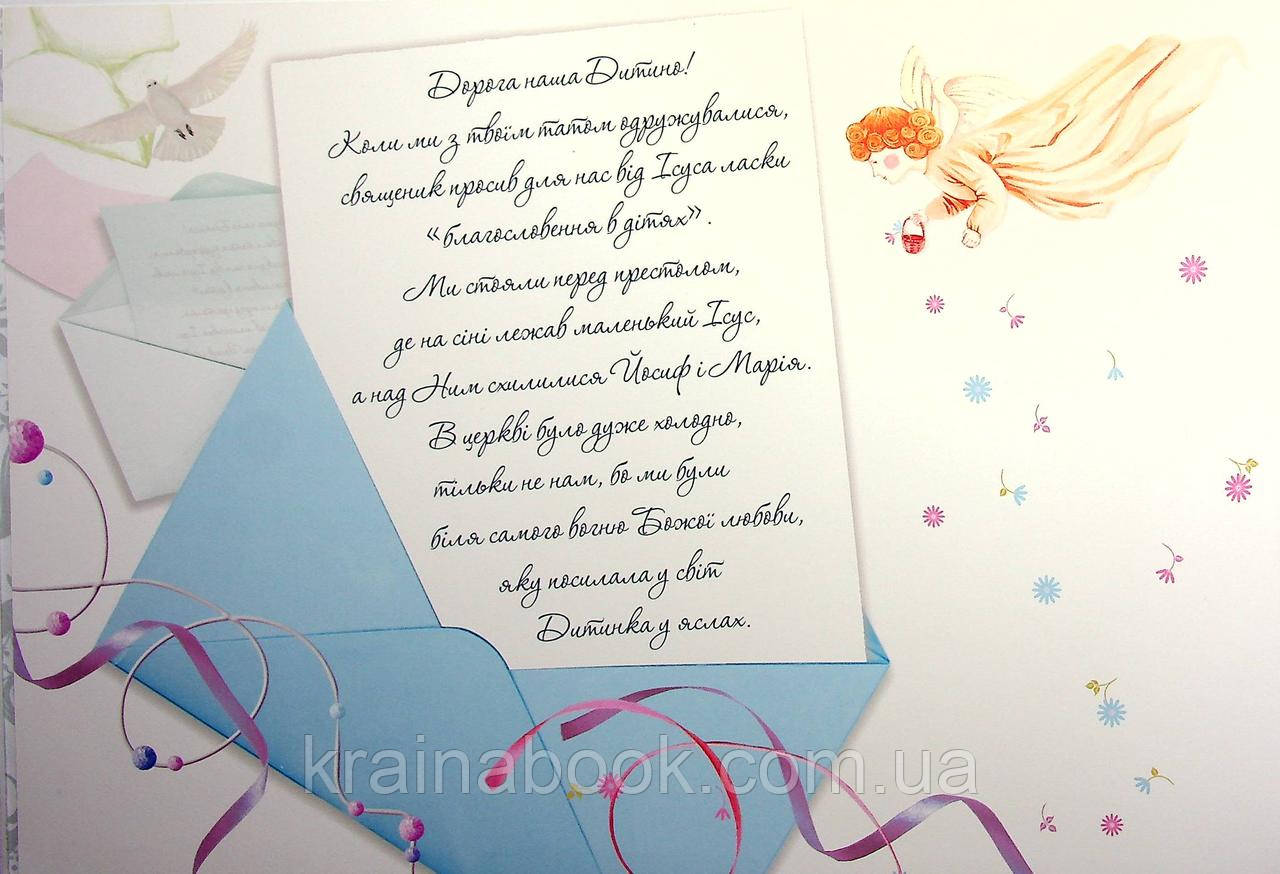 Дорога наша Дитино!
Коли ми з твоїм татом одружувалися,
священик просив для нас від Ісуса ласки
«благословення в дітях».
Ми стояли перед престолом,
де на сіні лежав маленький Ісус,
а над Ним схилилися Йосиф і Марія.
В церкві було дуже холодно,
тільки не нам, бо ми були
біля самого вогню Божої любови,
яку посилала у світ
Дитинка у яслах.
krainabook.com.ua